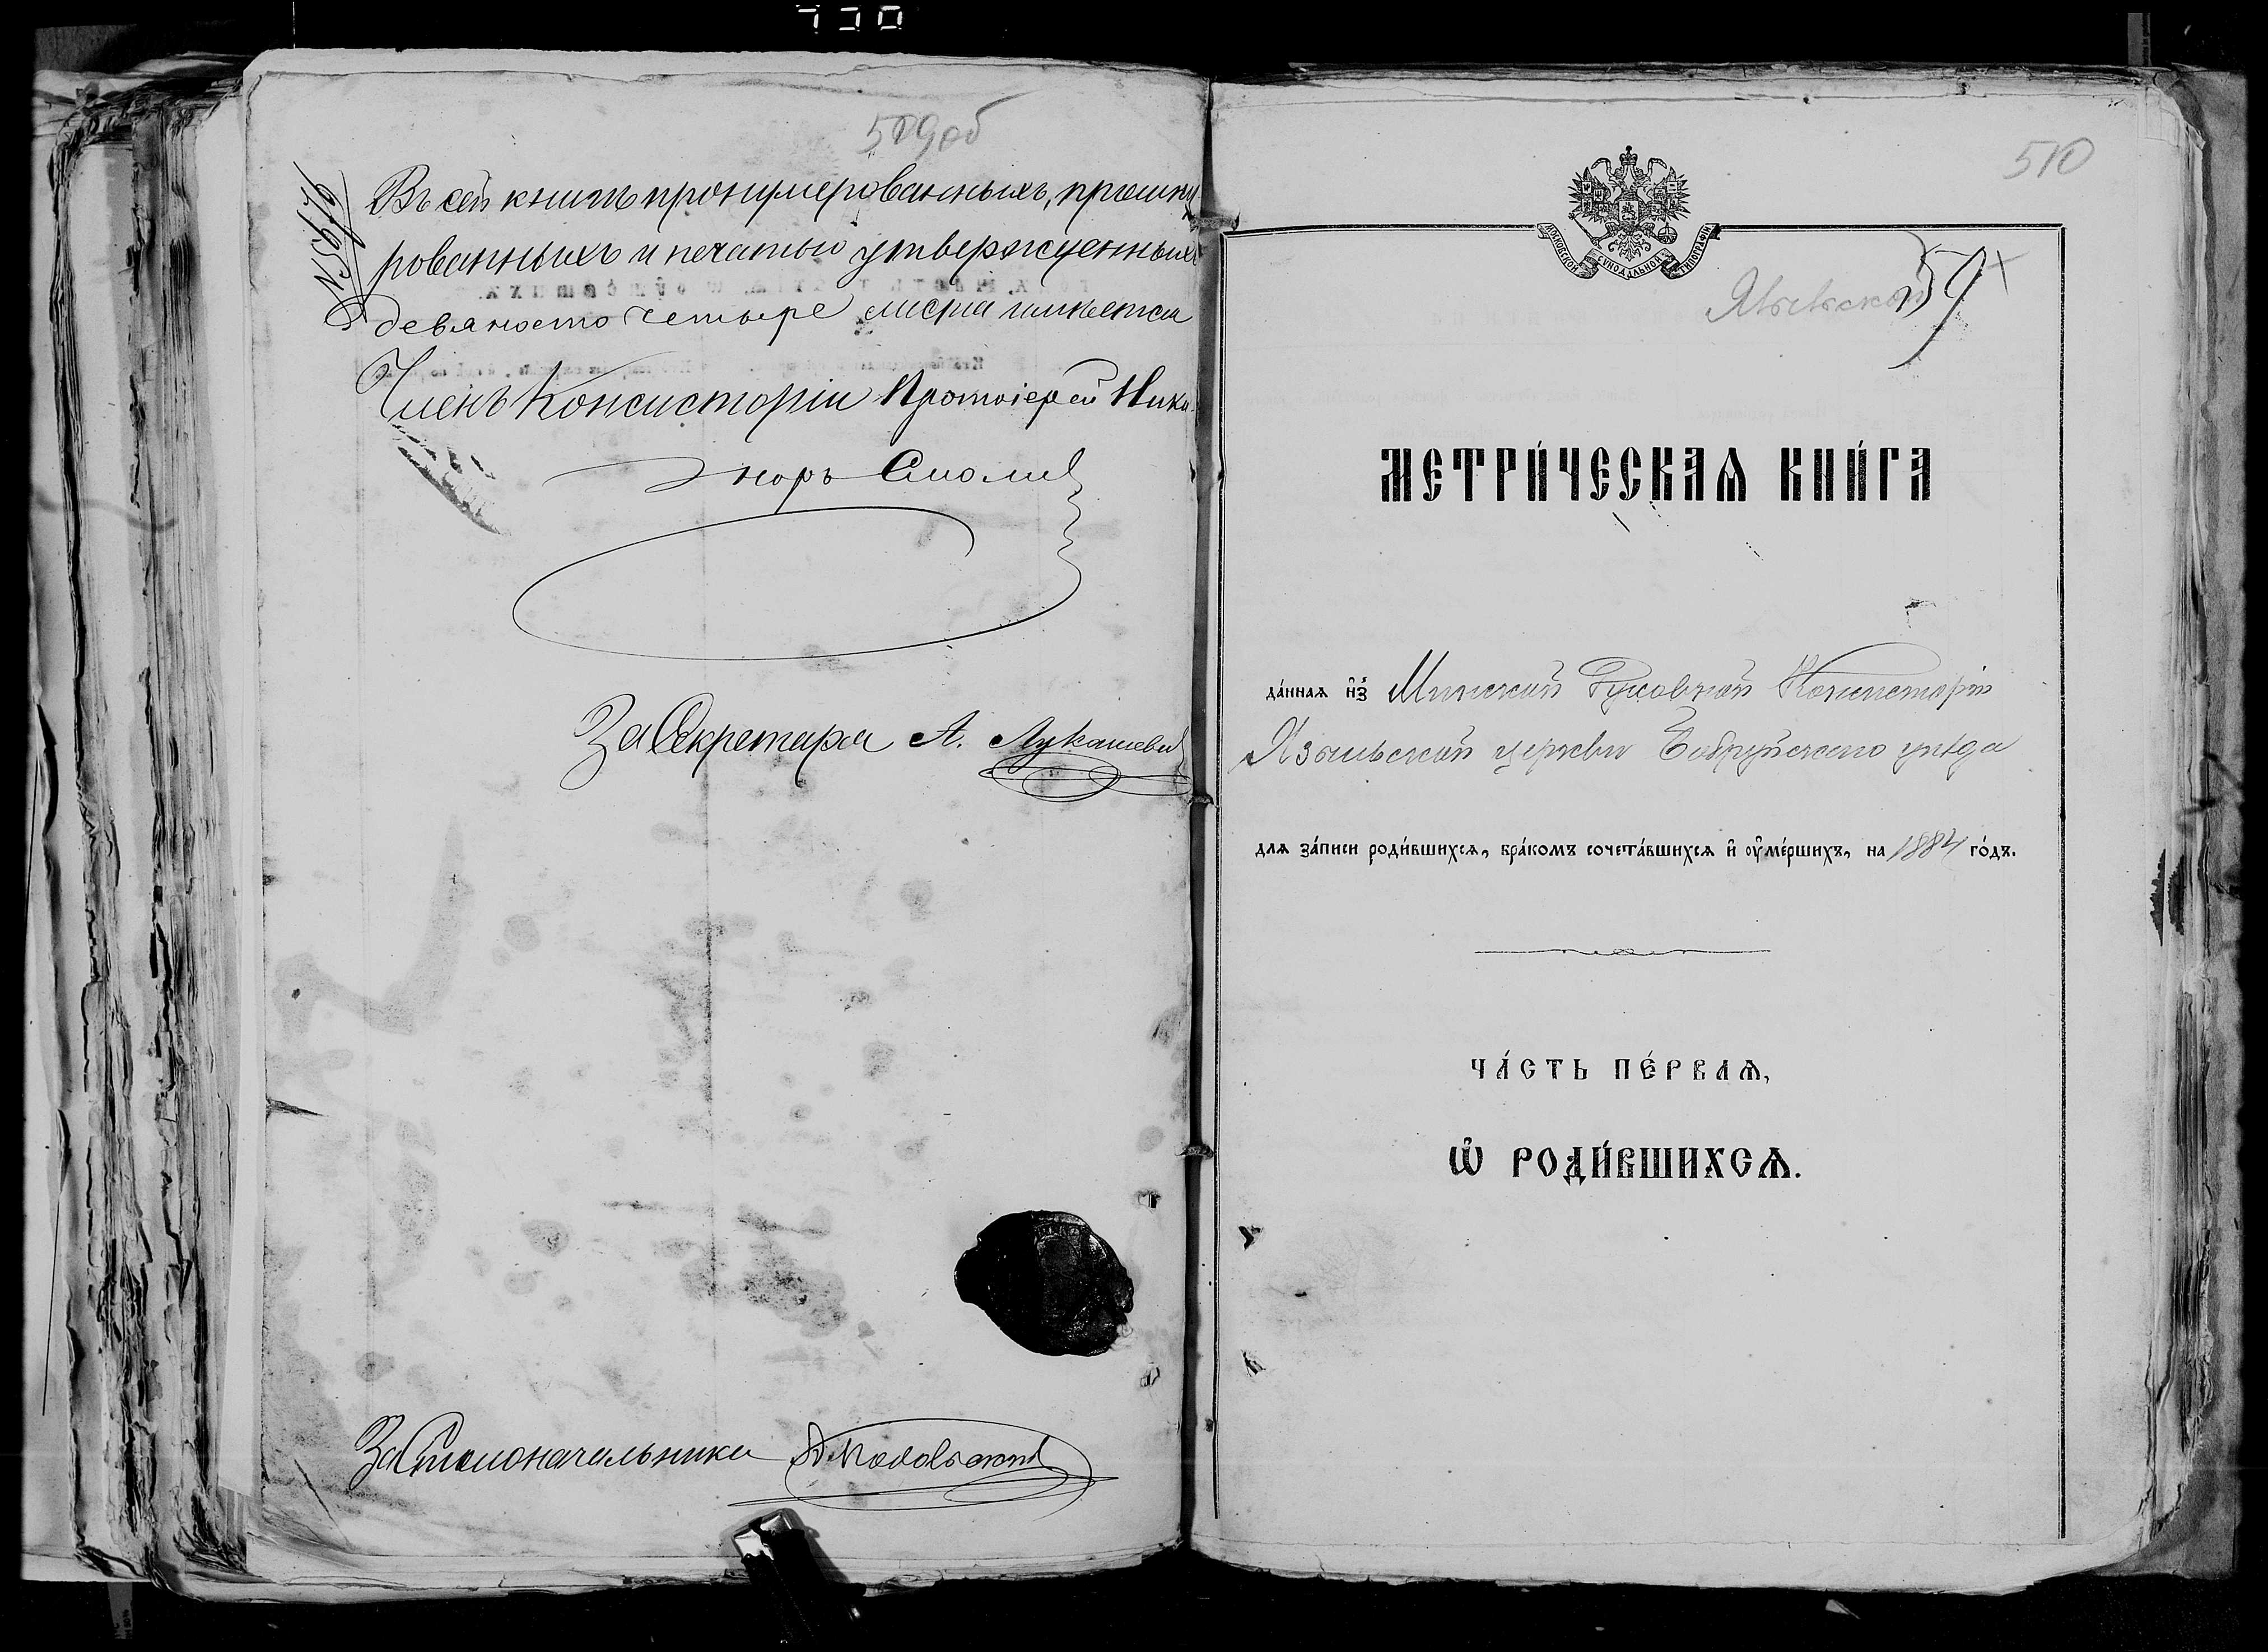 509об
Въ сей книгѣ пронумерованныхъ, прошну
рованныхъ и печатью утвержденныхъ
девяносто четыре листа имѣется
Членъ Консисторіи Протоіерей Ника
норъ Смолич
За Секретаря А. Лукашевич
За Столоначальника
510
МОСКОВСКОЙ СѴНОДАЛЬНОЙ ТИПОГРАФІИ
59
МЕТРИ́ЧЕСКАѦ КНИ́ГА
да́ннаѧ и҆з̾ Минской Духовной Консисторіи
Языльской церкви Бобруйскаго уѣзда
длѧ за́писи роди́вшихсѧ, бра́комъ сочета́вшихсѧ и҆ ᲂу҆ме́ршихъ, на 1884 го́дъ.
ЧА́СТЬ ПЕ́РВАѦ,
Ѽ РОДИ́ВШИХСѦ.